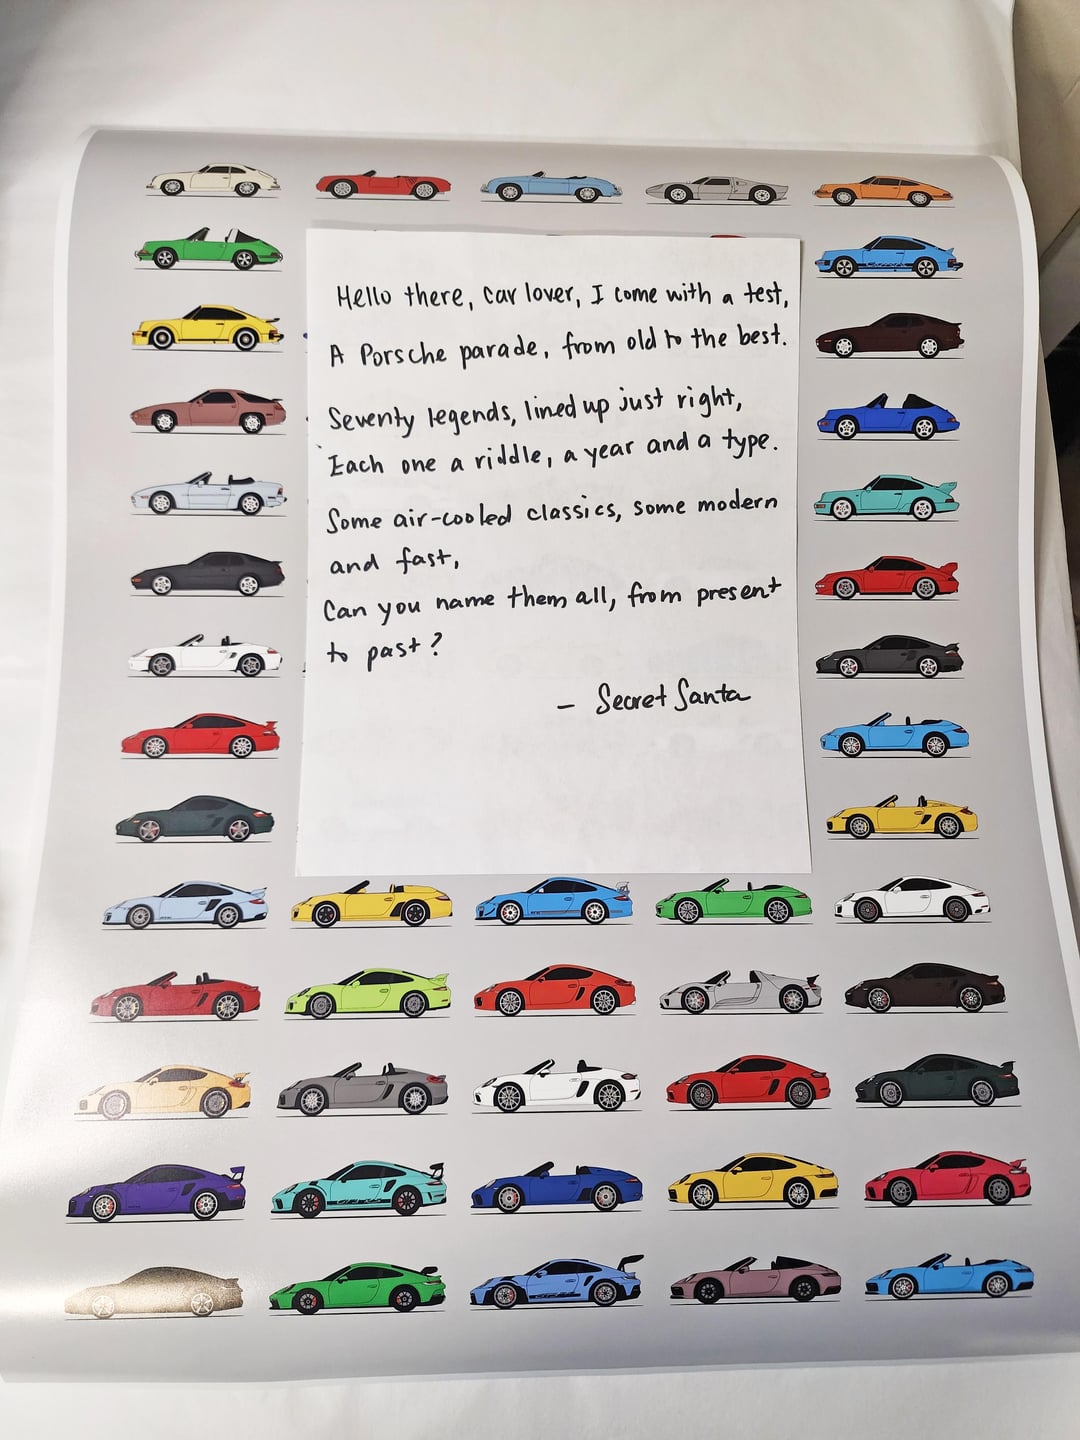 Hello there, car lover, I come with a test,
A Porsche parade, from old to the best.
Seventy legends, lined up just right,
Each one a riddle, a year and a type.
Some air-cooled classics, some modern
and fast,
Can you name them all, from present
to past?
- Secret Santa
Carrera